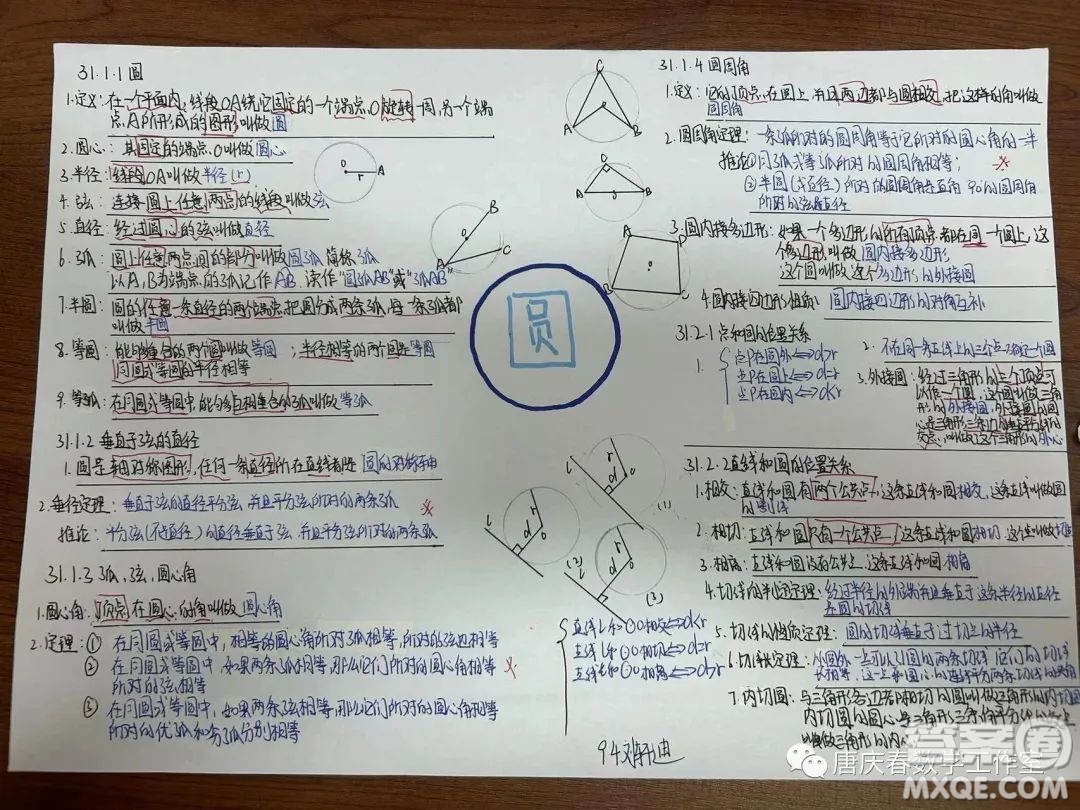 31.1.1圆
1.定义:在一个平面内,线段OA绕它固定的一个端点O旋转一周,另一个端
点A所形成的图形叫做圆
2.圆心:其固定的端点O叫做圆心
3.半径:线段OA叫做半径(r)
4.弦:连接圆上任意两点的线段叫做弦
5.直径:经过圆心的弦叫做直径
6.弧:圆上任意两点间的部分叫做圆弧简称弧
以A,B为端点的弧记作AB,读作"圆弧AB"或"弧AB"
7.半圆:圆的任意一条直径的两个端点把圆分成两条弧,每一条弧都
叫做半圆
8.等圆:能够重合的两个圆叫做等圆;半径相等的两个圆是等圆
同圆或等圆的半径相等
9.等弧:在同圆或等圆中,能够互相重合的弧叫做等弧
31.1.2 垂直于弦的直径
1.圆是轴对称图形,任何一条直径所在直线都是圆的对称轴
2.垂径定理:垂直于弦的直径平分弦,并且平分弦所对的两条弧
推论:平分弦(不是直径)的直径垂直于弦,并且平分弦所对的两条弧
31.1.3 弧,弦,圆心角
1.圆心角:顶点在圆心的角叫做圆心角
2.定理:① 在同圆或等圆中,相等的圆心角所对弧相等,所对的弦也相等
② 在同圆或等圆中,如果两条弧相等,那么它们所对的圆心角相等
所对的弦相等
③ 在同圆或等圆中,如果两条弦相等,那么它们所对的圆心角相等
所对的优弧和劣弧分别相等
O r A
A B C O
圆
C
O
A B
C
A O B
A D
O
B C
l r d O
(1)
l r d O
(2)
l r d O
(3)
直线l和⊙O相交⇔d<r
直线l和⊙O相切⇔d=r
直线l和⊙O相离⇔d>r
31.1.4 圆周角
1.定义:它的顶点在圆上,并且两边都与圆相交,把这样的角叫做
圆周角
2.圆周角定理:一条弧所对的圆周角等于它所对的圆心角的一半
推论①同弧或等弧所对的圆周角相等;
②半圆(或直径)所对的圆周角是直角 90°的圆周角
所对的弦是直径
3.圆内接多边形:如果一个多边形的所有顶点都在同一个圆上,这
个多边形叫做圆内接多边形
这个圆叫做这个多边形的外接圆
4.圆内接四边形性质:圆内接四边形的对角互补
31.2.1点和圆的位置关系
1.
点P在圆外⇔d>r
点P在圆上⇔d=r
点P在圆内⇔d<r
2.不在同一条直线上的三个点确定一个圆
3.外接圆:经过三角形的三个顶点可
以作一个圆,这个圆叫做三角
形的外接圆,外接圆的圆
心是三角形三条边的垂直平分线的
交点,叫做这个三角形的外心
31.2.2直线和圆的位置关系
1.相交:直线和圆有两个公共点,这条直线和圆相交,这条直线叫做圆
的割线
2.相切:直线和圆只有一个公共点,这条直线和圆相切,这条叫做切线
3.相离:直线和圆没有公共点,这条直线和圆相离
4.切线的判定定理:经过半径的外端并且垂直于这条半径的直径
是圆的切线
5.切线的性质定理:圆的切线垂直于过切点的半径
6.切线长定理:从圆外一点可以引圆的两条切线,它们的切线长
相等,这一点和圆心的连线平分两条切线的夹角
7.内切圆:与三角形各边都相切的圆叫做三角形的内切圆
内切圆的圆心是三角形三条角平分线的交点
叫做三角形的内心
唐庆春数学工作室
答案圈
MXQE.COM